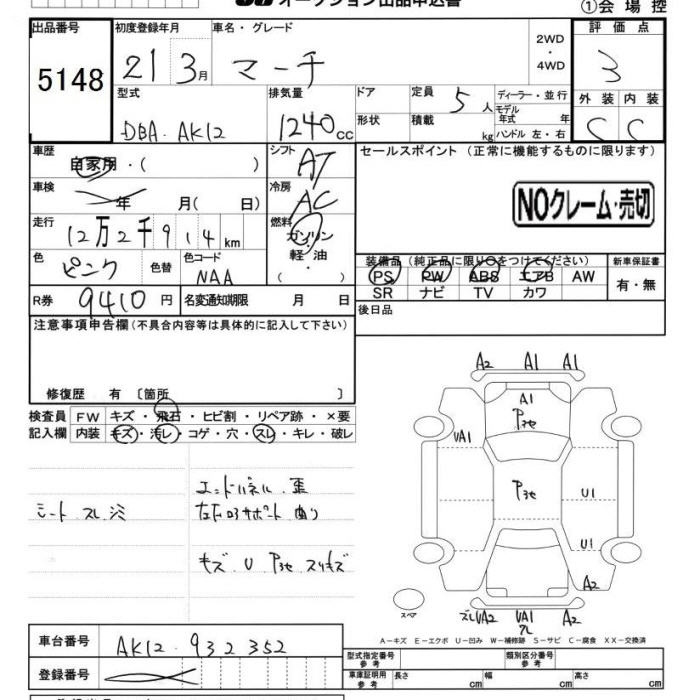 オークション出品申込書
①会場控
出品番号 初度登録年月 車名・グレード 2WD・4WD 評価点
5148 21 3月 マーチ 3
型式 排気量 ドア 定員 5人 ディーラー・並行 外装 内装
DBA・AK12 1240cc 形状 積載 kg モデル年式 年 ハンドル 左・右 C C
車歴 自家用・( ) シフト AT セールスポイント (正常に機能するものに限ります)
車検 年 月( 日) 冷房 AC NOクレーム・売切
走行 12万2千914km 燃料 ガソリン・軽油 ( )
色 ピンク 色替 色コード NAA 装備品 (純正品に限り○をつけてください) 新車保証書
PS PW ABS エアB AW 有・無
R券 9410円 名変通知期限 月 日 SR ナビ TV カワ
注意事項申告欄(不具合内容等は具体的に記入して下さい) 後日品
修復歴 有 〔箇所 〕
検査員 FW キズ・飛石・ヒビ割・リペア跡・×要
記入欄 内装 キズ・汚レ・コゲ・穴・スレ・キレ・破レ
A2 A1 A1
A1
VA1
U1
U1
A2
VA2 VA1 A2
スペア
エンドパネル 歪
シート スレ シミ
キズ U スリキズ
A−キズ E−エクボ U−凹み W−補修跡 S−サビ C−腐食 XX−交換済
車台番号 AK12-932352
登録番号
型式指定番号 参考 類別区分番号 参考
車庫証明用 参考 長さ cm 幅 cm 高さ cm